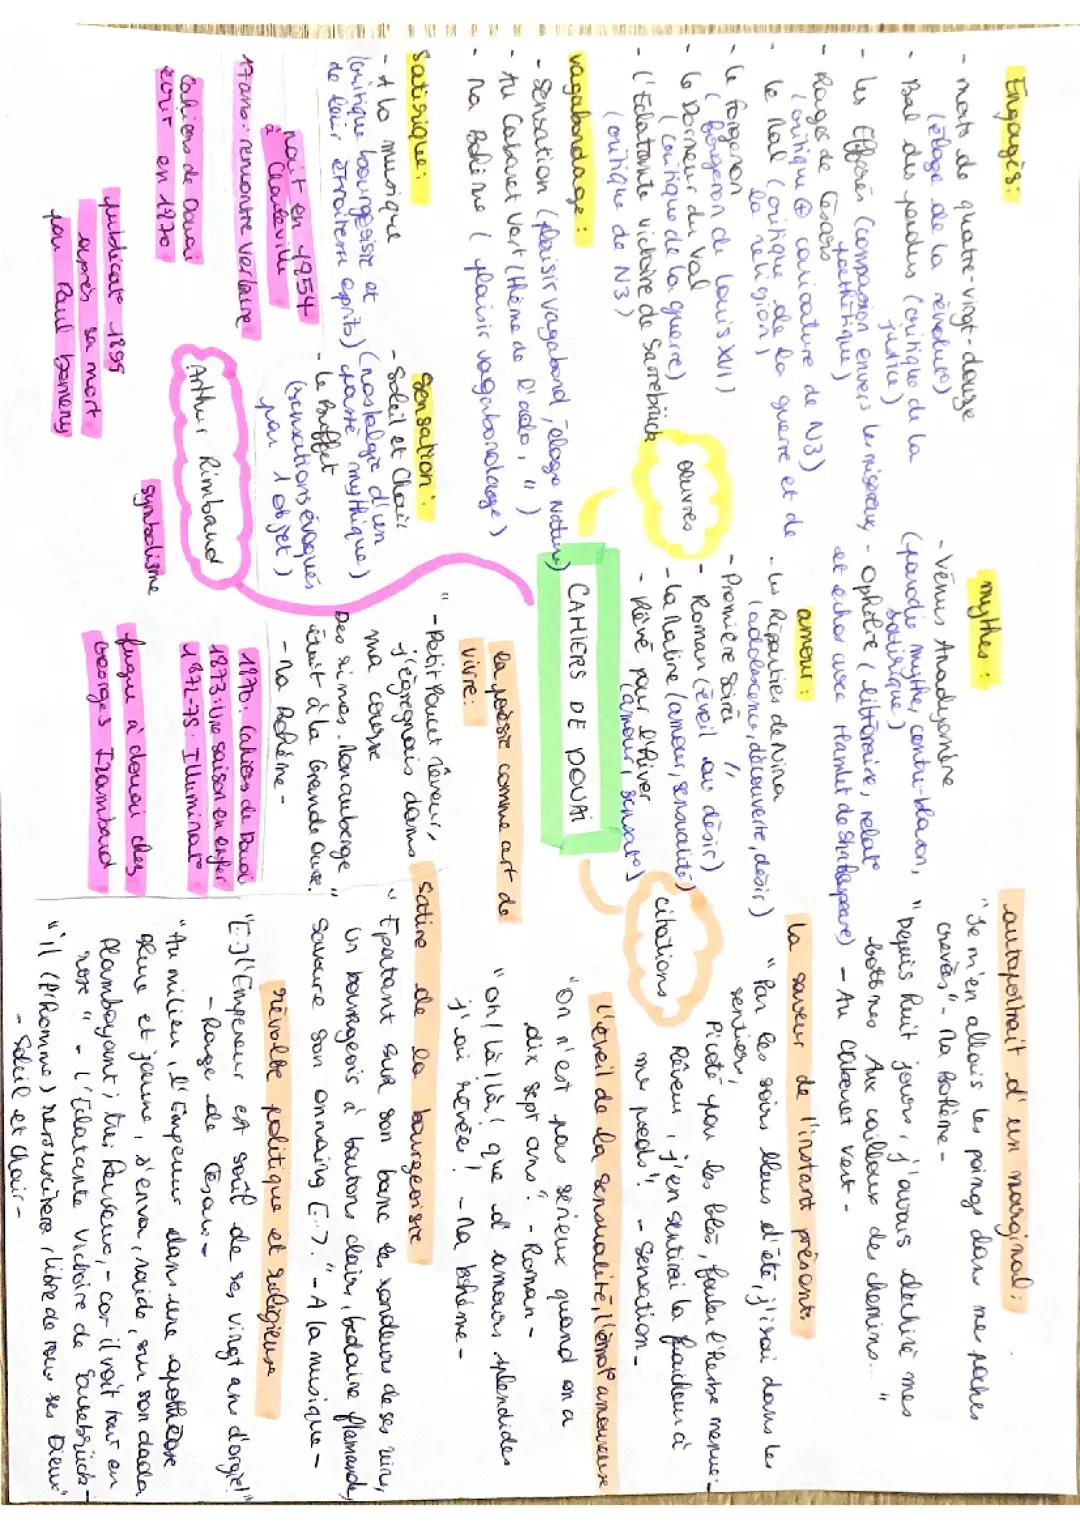 Engagés:
- morts de quatre-vingt-douze
(éloge de la révolut°)
- Bal des pendus (critique de la
justice)
- les Effarés (compassion envers les miséreux,
pathétique)
- Rages de Césars
(critique ⊕ caricature de N3)
- le Mal (critique de la guerre et de
la religion)
- le forgeron
(forgeron de Louis XVI)
- le Dormeur du Val
(critique de la guerre)
- l'Eclatante victoire de Sarrebrück
(critique de N3)
vagabondage:
- Sensation (plaisir vagabond, éloge Nature)
- Au Cabaret Vert (thème de l'ado, ")
- Ma Bohème (plaisir vagabondage)
Satirique:
- A la musique
(critique bourgeoisie et
de leur étroitesse esprits)
sensation:
- Soleil et Chair
(nostalgie d'un
passé mythique)
- Le Buffet
(sensations évoqués
par 1 objet)
mythes:
- Vénus Anadyomène
(parodie mythe, contre-blason,
satirique)
- Ophélie (littéraire, relat°
et écho avec Hamlet de Shakespeare)
amour:
- les Reparties de Nina
(adolescence, découverte, désir)
- Première Soirée "
- Roman (éveil au désir)
- La Maline (amour, sensualité)
- Rêvé pour l'hiver
(amour, sensat°)
oeuvres
CAHIERS DE DOUAI
citations
autoportrait d'un marginal:
"Je m'en allais les poings dans mes poches
crevées" - Ma Bohème -
"Depuis huit jours, j'avais déchiré mes
bottines Aux cailloux des chemins... "
- Au cabaret vert -
la saveur de l'instant présent
"Par les soirs bleus d'été, j'irai dans les
sentiers,
Picoté par les blés, fouler l'herbe menue:
Rêveur, j'en sentirai la fraicheur à
mes pieds". - Sensation -
l'éveil de la sensualité, l'émot° amoureuse
"On n'est pas sérieux quand on a
dix sept ans" - Roman -
"oh! là! là! que d'amours splendides
j'ai rêvées! - Ma bohème -
la poésie comme art de
vivre:
" - Petit Poucet rêveur,
j'égregnais dans
ma course
Des rimes. Mon auberge
était à la Grande Ourse. "
- Ma Bohème -
satire de la bourgeoisie
" Epatant sur son banc les rondeurs de ses reins,
Un bourgeois à boutons clairs, bedaine flamande,
Savoure son onnaing [...]. " - A la musique -
révolte politique et religieuse
"[...] l'Empereur est soûl de ses vingt ans d'orgie!"
- Rage de Césars -
"Au milieu, l'Empereur dans une apothéose
bleue et jaune, s'en va, raide, sur son dada
flamboyant; très heureux, - car il voit tout en
rose " - l'Eclatante Victoire de Sarrebrück -
"il (l'Homme) ressuscitera, libre de tous ses Dieux"
- Soleil et Chair -
Arthur Rimbaud
nait en 1954
à Charleville
17 ans: remontre Verlaine
Cahiers de Douai
écrit en 1870
publicat° 1895
après sa mort
par Paul Demeny
symbolisme
1870: Cahiers de Douai
1873: Une saison en enfer
1872-75: Illuminat°
fugue à douai chez
Georges Izambard